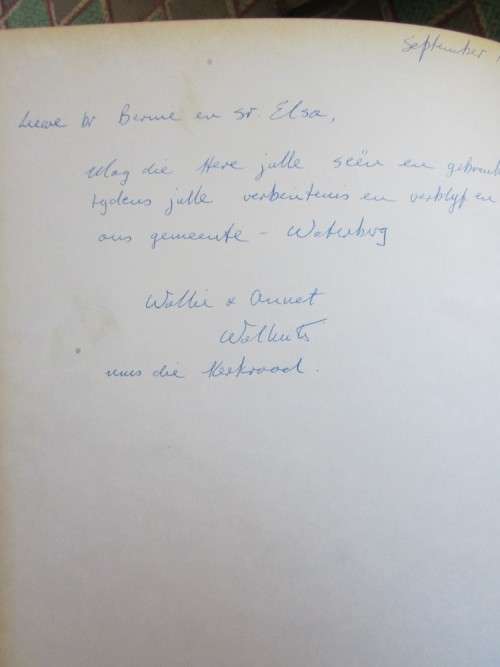 September
Liewe br Bernie en sr. Elsa,
Mag die Here julle seën en gebruik
tydens julle verbintenis en verblyf en
ons gemeente - Waterberg
Wallie & Annet
nms die Kerkraad.